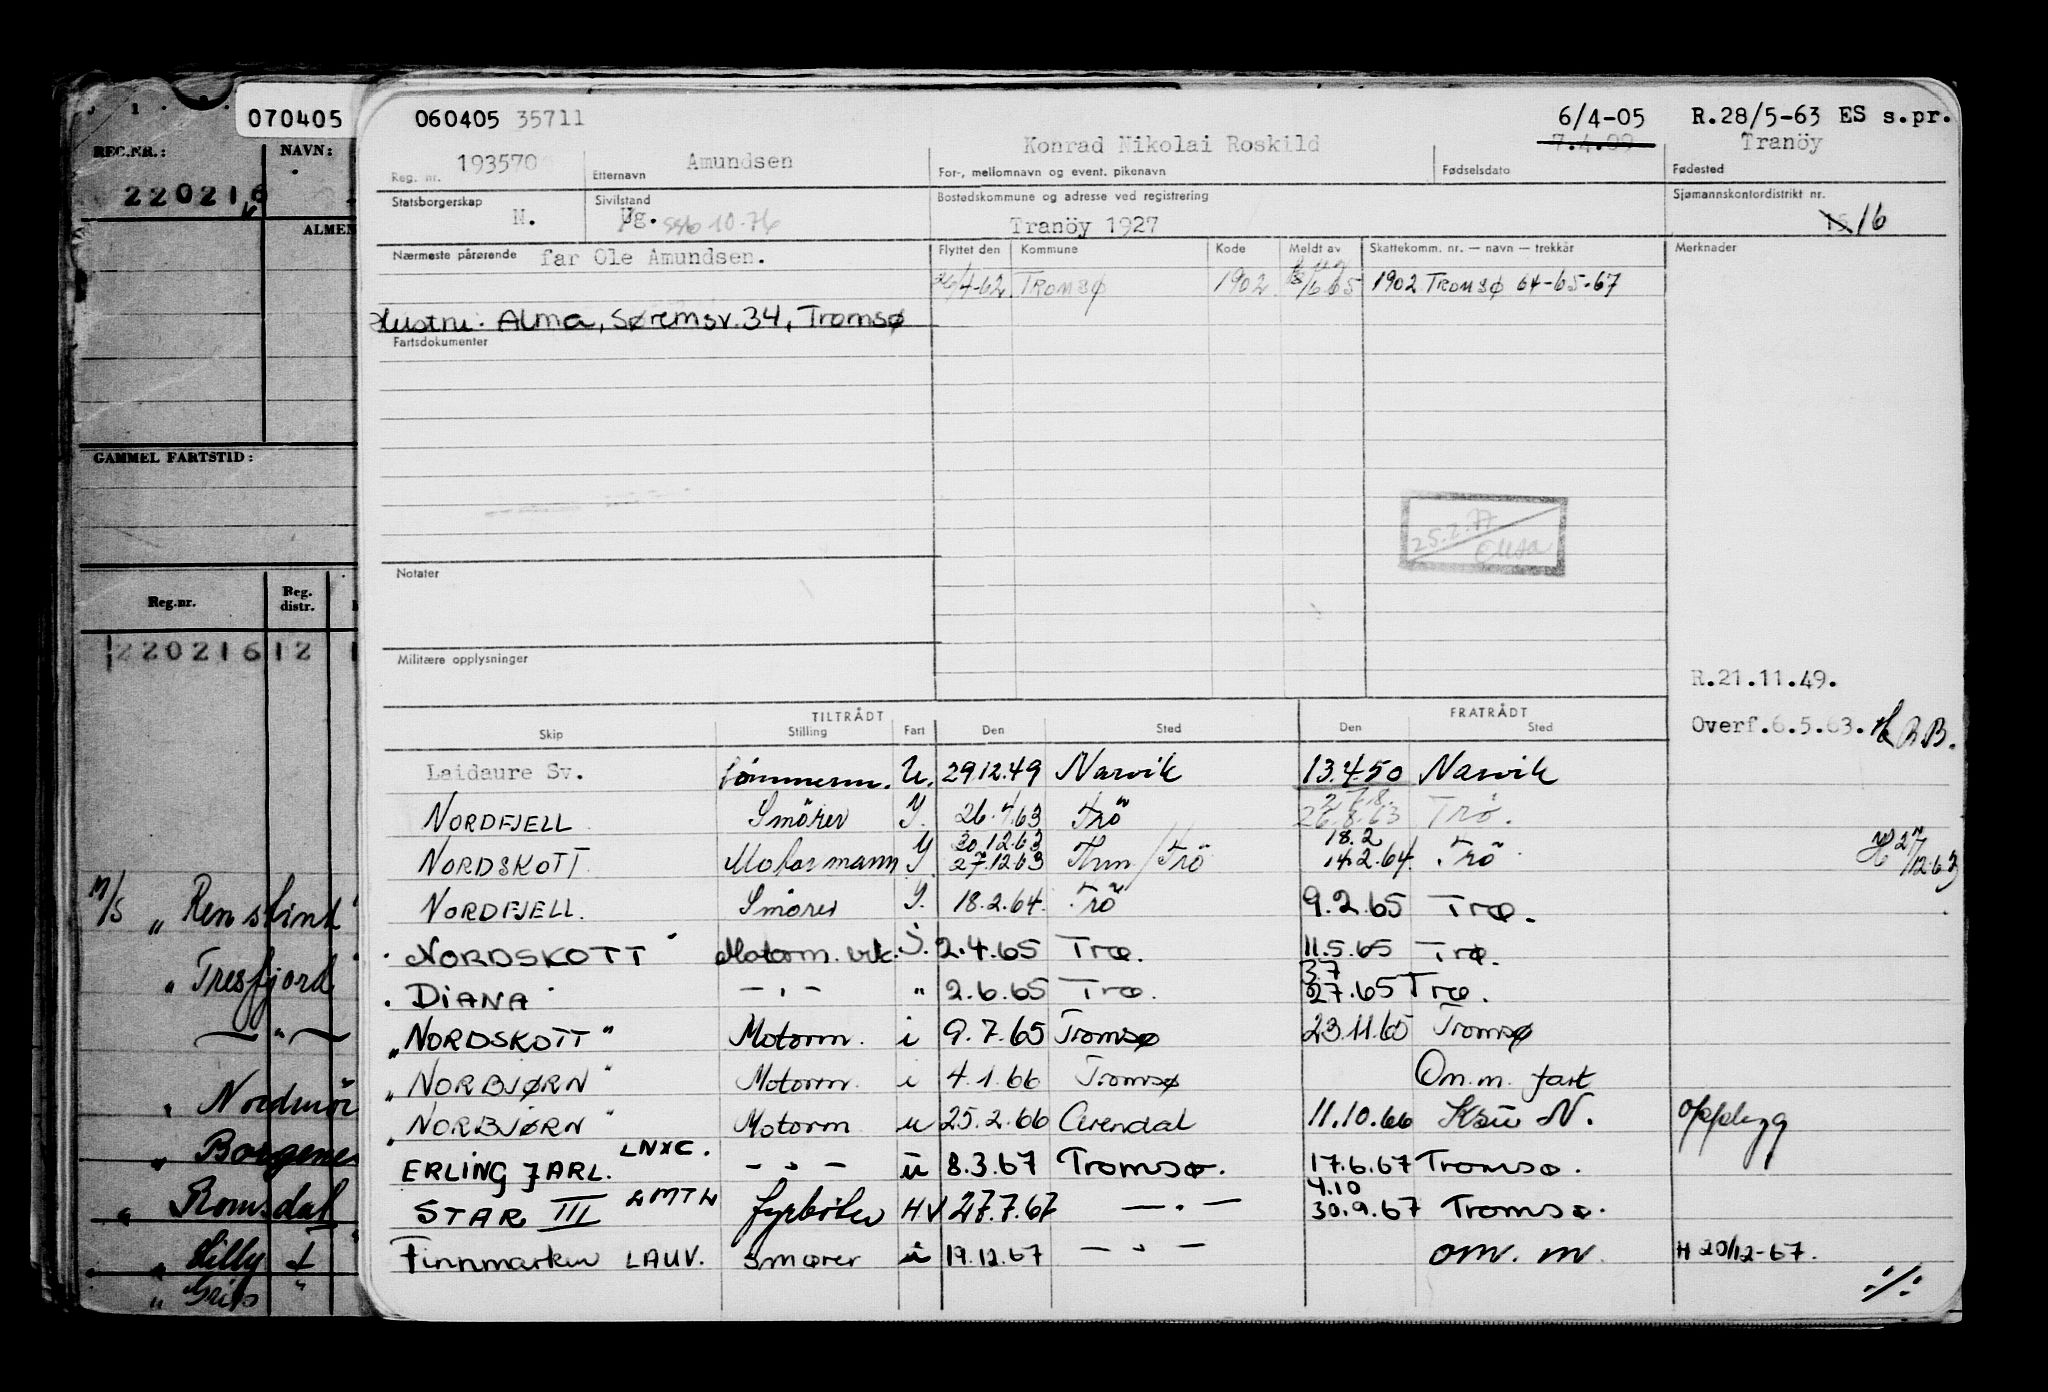 070405
REG.NR.:
NAVN:
220216
ALMEN
GAMMEL FARTSTID:
Reg.nr.
Reg. distr.
220216 12 1
M/S " Renstind"
" Tresfjord"
— " —
" Nordmör
" Borgenes
" Romsdal"
" Lilly
" Grips "
060405 35711
6/4-05 R.28/5-63 ES s.pr.
Reg. nr. 193570
Etternavn Amundsen
Konrad Nikolai Roskild
For-, mellomnavn og event. pikenavn
7.4.09
Fødselsdato
Tranöy
Fødested
Statsborgerskap N.
Sivilstand Ug. ssb 10.76
Bostedskommune og adresse ved registrering
Tranöy 1927
Sjømannskontordistrikt nr.
15 16
Nærmeste pårørende far Ole Amundsen.
Flyttet den Kommune Kode Meldt av Skattekomm. nr. — navn — trekkår Merknader
26/4-62 TROMSØ 1902 1902 TROMSØ 64-65-67
Hustru: Alma, Søremsv. 34, Tromsø
Fartsdokumenter
25.2.77
Notater
Militære opplysninger
R.21.11.49.
Overf.6.5.63. H R.B.
TILTRÅDT FRATRÅDT
Skip Stilling Fart Den Sted Den Sted
Laidaure Sv. tömmerm. U. 29.12.49 Narvik 13.4.50 Narvik
NORDFJELL Smörer I. 26.4.63 Trö 26.8.63 Trö.
NORDSKOTT Motormann I 30.12.63 27.12.63 Thm/Trö 18.2 14.2.64. Trö H 27/12.63
NORDFJELL. Smörer I. 18.2.64. Trö 9.2.65 Trø.
" NORDSKOTT " Motorm. vik. I. 2.4.65 Trø. 11.5.65 Trø.
" DIANA " — " — " 2.6.65 Trø. 3.7 2.7.65 Trø.
" NORDSKOTT " Motorm. i 9.7.65 Tromsø 23.11.65 Tromsø
" NORBJØRN " Motorm. i 4.1.66 Tromsø Om.m. fart
" NORBJØRN " Motorm u 25.2.66 Arendal 11.10.66 Ksü N. opplegg
ERLING JARL. LNXC. — " — u 8.3.67 Tromsø. 17.6.67 Tromsø.
STAR III LMTW fyrböter HV 27.7.67 — " — 4.10 30.9.67 Tromsø.
Finnmarken LAUV. smører u 19.12.67 — " — om. m. H 20/12-67.
·/·